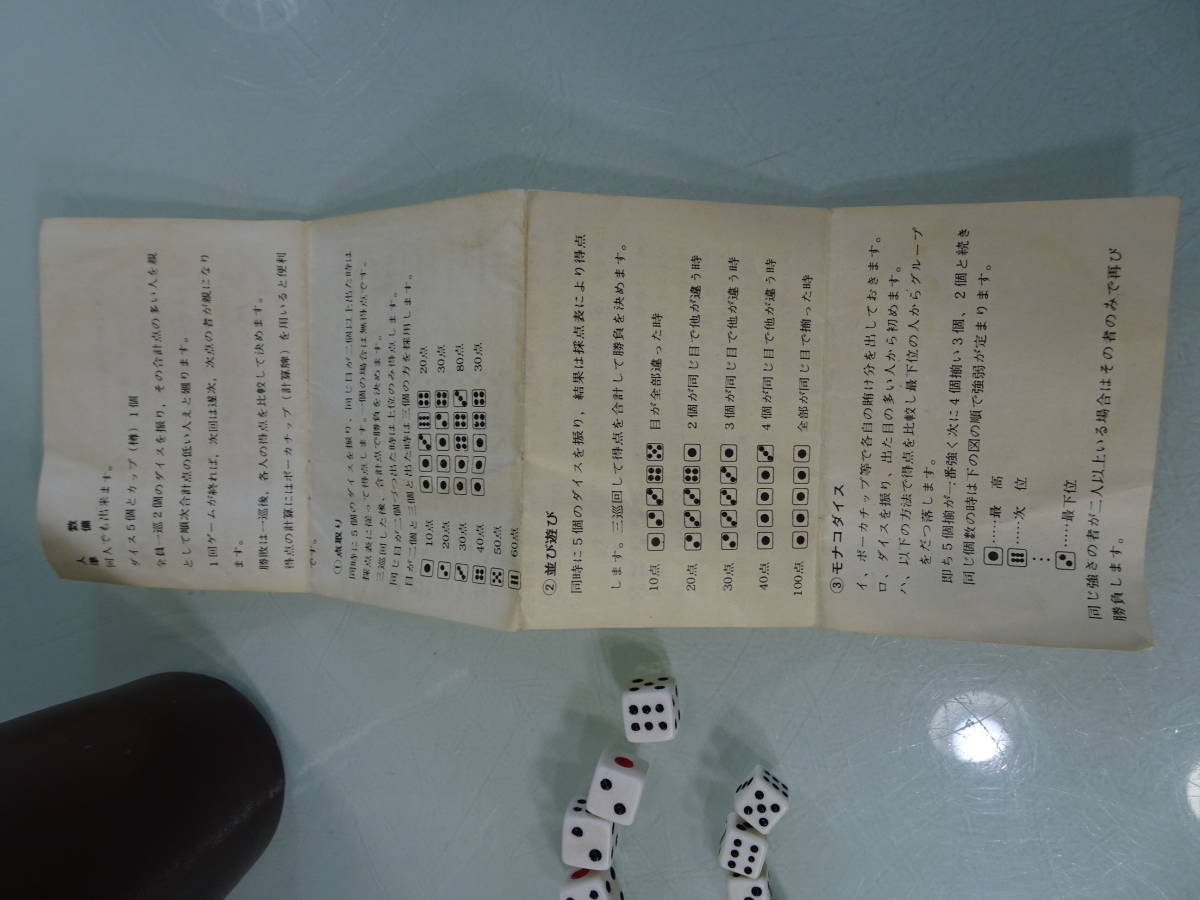 人数
準備
何人でも出来ます。
ダイス5個とカップ（樽）1個
全員一巡2個のダイスを振り、その合計点の多い人を親
として順次合計点の低い人えと廻ります。
1回ゲームが終れば、次回は逐次、次点の者が親になり
ます。
勝敗は一巡後、各人の得点を比較して決めます。
得点の計算にはポーカチップ（計算牌）を用いると便利
です。
①点取り
同時に5個のダイスを振り、同じ目が二個以上出た時は
採点表に従って得点します。一個の場合は無得点です。
三巡回した後、合計点で勝負を決めます。
同じ目が二個づつ出た時は上位のみ得点します。
目が二個と三個と出た時は三個の方を採用します。
10点 20点
20点 30点
30点 80点
40点 30点
50点
60点
②並び遊び
同時に5個のダイスを振り、結果は採点表により得点
します。三巡回して得点を合計して勝負を決めます。
10点 目が全部違った時
20点 2個が同じ目で他が違う時
30点 3個が同じ目で他が違う時
40点 4個が同じ目で他が違う時
100点 全部が同じ目で揃った時
③モナコダイス
イ、ポーカチップ等で各自の賭け分を出しておきます。
ロ、ダイスを振り、出た目の多い人から初めます。
ハ、以下の方法で得点を比較し最下位の人からグループ
をだつ落します。
即ち5個揃が一番強く次に4個揃い3個、2個と続き
同じ個数の時は下の図の順で強弱が定まります。
……最高
……次位
：
……最下位
同じ強さの者が二人以上いる場合はその者のみで再び
勝負します。